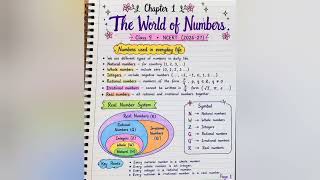 Chapter 1
The World of Numbers
Class 9 • NCERT (2026-27)
Numbers used in everyday life
We use different types of numbers in daily life.
Natural numbers - for counting (1, 2, 3, ...)
Whole numbers - include zero (0, 1, 2, 3, ...)
Integers - include negative numbers (..., -2, -1, 0, 1, 2, ...)
Rational numbers - numbers of the form p/q, q ≠ 0
Irrational numbers - cannot be written in p/q form
Real numbers - all rational and irrational numbers together
Real Number System
Real Numbers (R)
Rational Numbers (Q)
Irrational Numbers
Integers (Z)
Whole (W)
Natural (N)
Symbol
N → Natural
W → Whole
Z → Integers
Q → Rational
→ Irrational
R → Real
Key Points
Every natural number is a whole number.
Every whole number is an integer.
Every integer is a rational number.
number is a real number.
Page 1